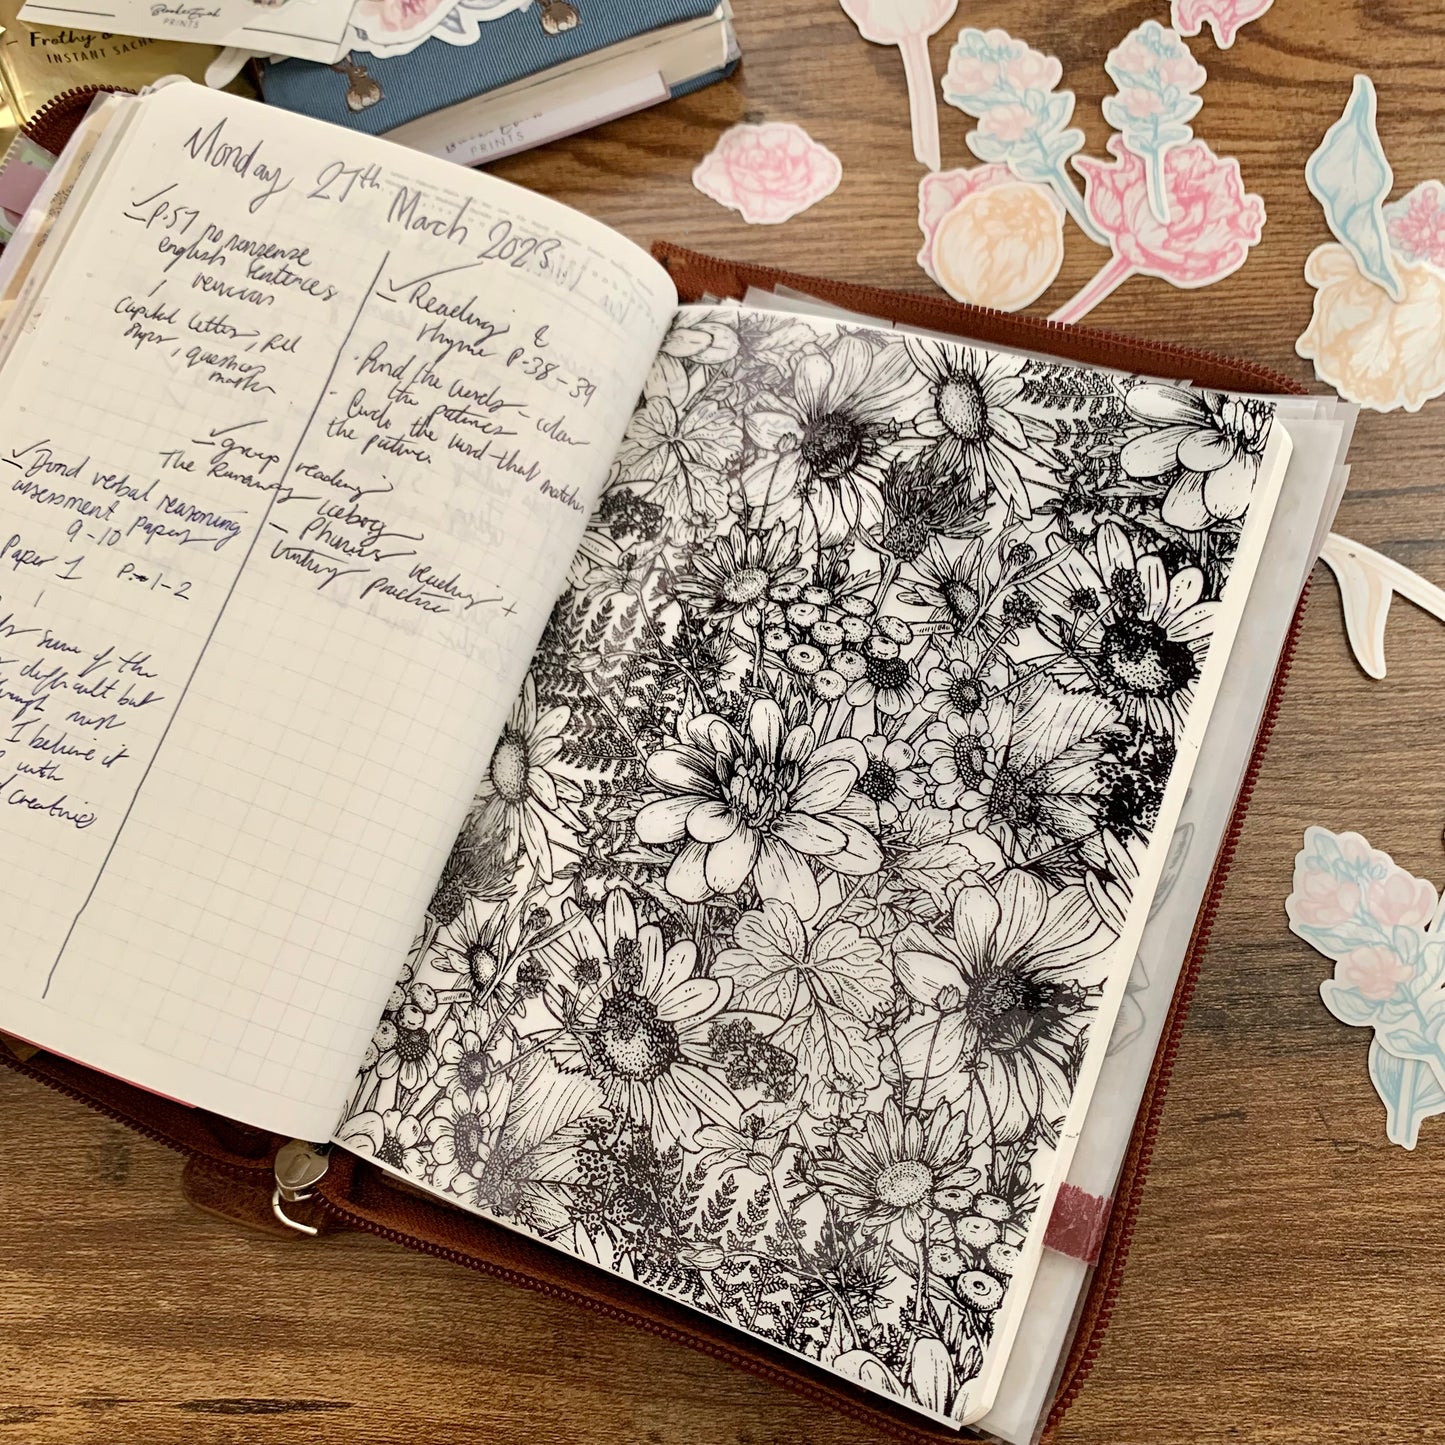 PRINTS
Frothy &
INSTANT SACHE
PRINTS
Monday 27th March 2023
✓ P.57 no nonsense
english sentences
revision
capital letters, full
stops, question
marks
✓ Bond verbal reasoning
assessment papers
9-10
Paper 1 P. 1-2
some of the
difficult but
I believe it
with
creative
✓ Reading &
rhyme P.38-39
· Find the words - colour
the pictures
· Circle the word that matches
the picture
✓ group reading
The Runaway Iceberg
- Phonics reading +
writing practice